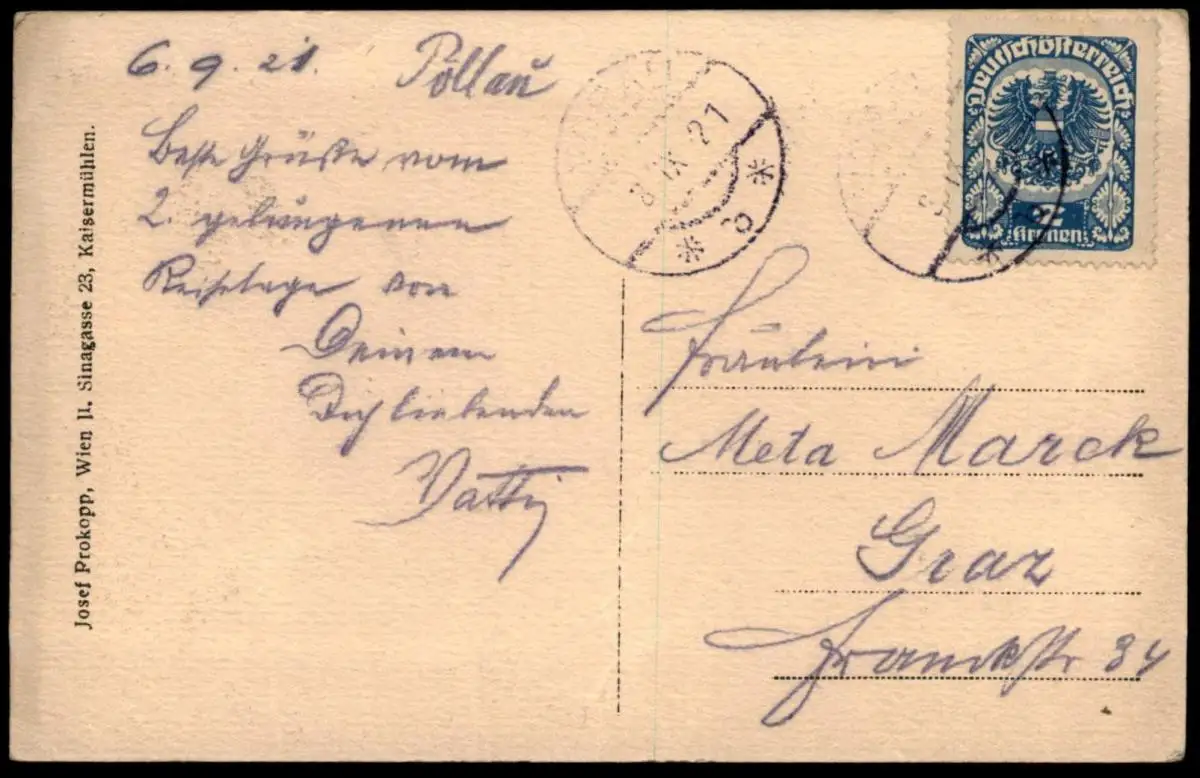 6. 9. 21. Pöllau
Beste Grüße vom
2. gelungenen
Reisetage von
Deinem
Dich liebenden
Josef Prokopp, Wien II. Sinagasse 23, Kaisermühlen.
8. IX. 21
* c *
Deutschösterreich
2
Kronen
Fräulein
Meta Marck
Graz
Franckstr 34